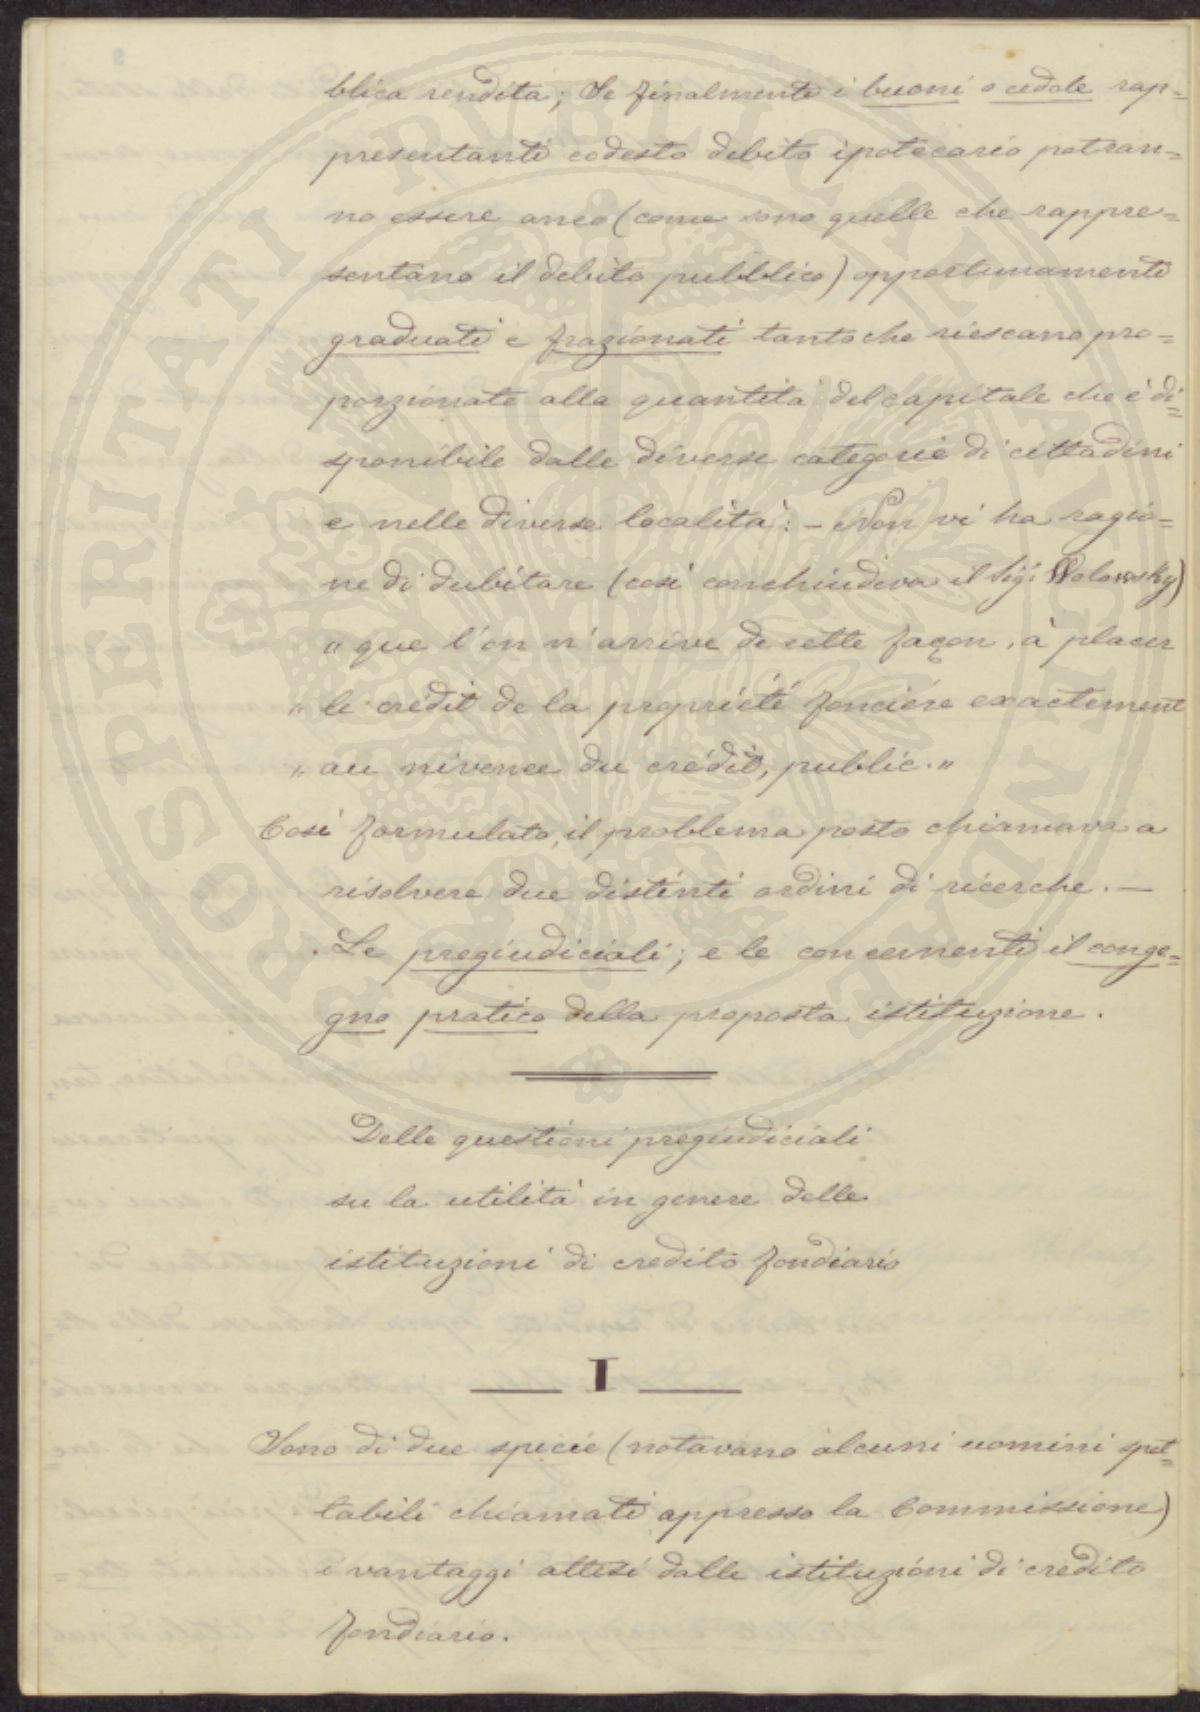 blica rendita; Se finalmente i buoni o cedole rap=
presentanti codesto debito ipotecario potran=
no essere anco (come sono quelle che rappre=
sentano il debito pubblico) opportunamente
graduati e frazionati tanto che riescano pro=
porzionate alla quantità del capitale che è di=
sponibile dalle diverse categorie di cittadini
e nelle diverse località: – Non vi ha ragio=
ne di dubitare (così conchiudeva il Sig: Wolowsky)
"que l'on n'arrive de cette façon, à placer
" le crédit de la propriété foncière exactement
" au niveau du crédit, public."
Così formulato, il problema posto chiamava a
risolvere due distinti ordini di ricerche. —
Le pregiudiciali; e le concernenti il conge=
gno pratico della proposta istituzione.
Delle questioni pregiudiciali
su la utilità in genere delle
istituzioni di credito fondiario
I
Sono di due specie (notavano alcuni uomini spet=
tabili chiamati appresso la Commissione)
i vantaggi attesi dalle istituzioni di credito
fondiario.
PROSPERITATI PUBLICAE